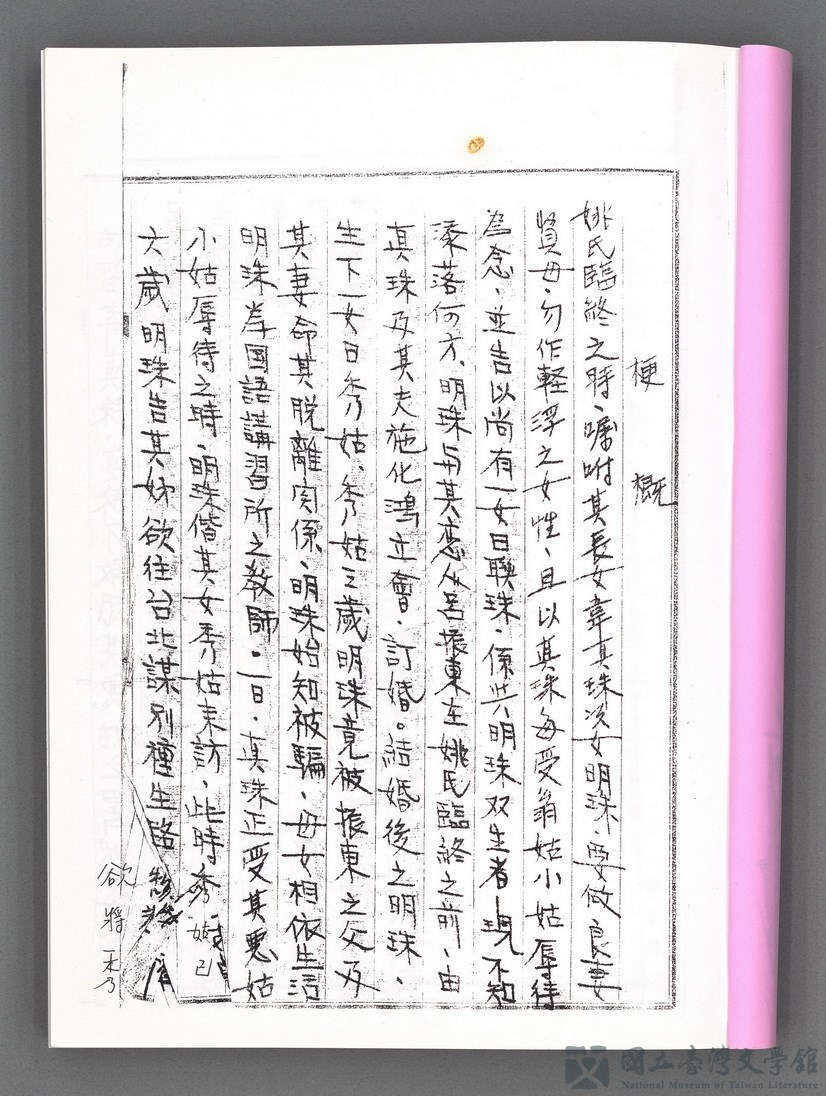 梗概
姚氏臨終之時、囑咐其長女韋真珠次女明珠、要做良妻
賢母、勿作軽浮之女性、且以真珠每受翁姑小姑辱待
為念、並告以尚有一女曰联珠、係與明珠双生者、現不知
漆落何方、明珠与其恋人呂振東在姚氏臨終之前、由
真珠及其夫施化鴻立會、訂婚。結婚後之明珠、
生下一女曰秀姑、秀姑三歲明珠竟被振東之父及
其妻命其脱離関係、明珠始知被騙、母女相依生活
明珠為國語講習所之教師。一日、真珠正受其悪姑
小姑辱待之時、明珠偕其女秀姑来訪、此時秀姑已
六歲明珠告其姊欲往台北謀別種生路
欲將秀
國立臺灣文學館
National Museum of Taiwan Literature